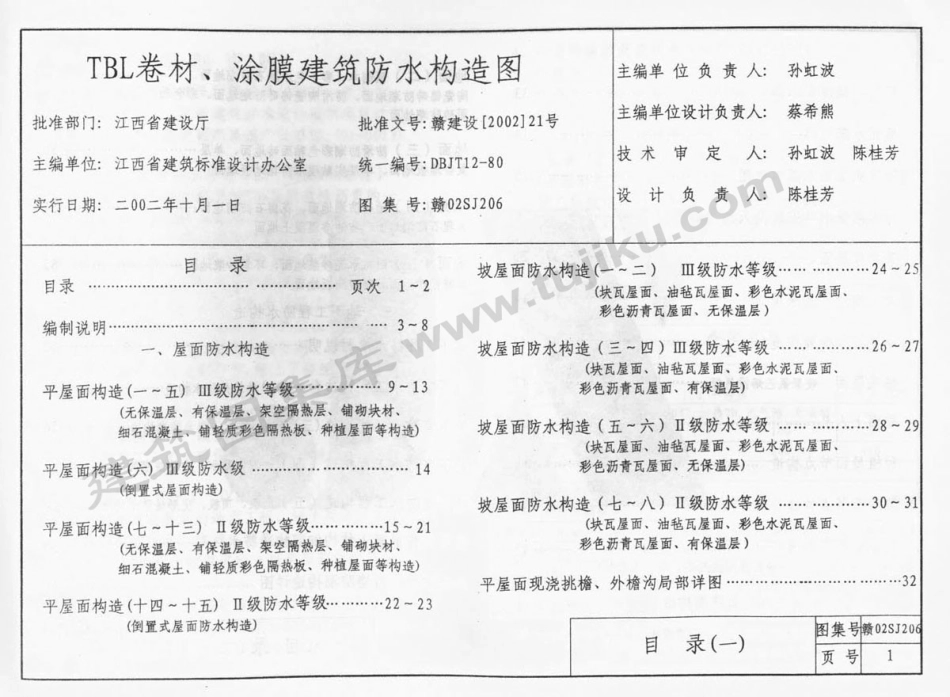 TBL卷材、涂膜建筑防水构造图
批准部门: 江西省建设厅
批准文号: 赣建设[2002]21号
主编单位: 江西省建筑标准设计办公室
统一编号: DBJT12-80
实行日期: 二00二年十月一日
图 集 号: 赣02SJ206
主编单位负责人: 孙虹波
主编单位设计负责人: 蔡希熊
技术审定人: 孙虹波 陈桂芳
设计负责人: 陈桂芳
目 录
目录 …… 页次 1~2
编制说明 …… 3~8
一、屋面防水构造
平屋面构造(一~五) Ⅲ级防水等级 …… 9~13
(无保温层、有保温层、架空隔热层、铺砌块材、
细石混凝土、铺轻质彩色隔热板、种植屋面等构造)
平屋面构造(六) Ⅲ级防水级 …… 14
(倒置式屋面构造)
平屋面构造(七~十三) Ⅱ级防水等级 …… 15~21
(无保温层、有保温层、架空隔热层、铺砌块材、
细石混凝土、铺轻质彩色隔热板、种植屋面等构造)
平屋面构造(十四~十五) Ⅱ级防水等级 …… 22~23
(倒置式屋面防水构造)
坡屋面防水构造(一~二) Ⅲ级防水等级 …… 24~25
(块瓦屋面、油毡瓦屋面、彩色水泥瓦屋面、
彩色沥青瓦屋面、无保温层)
坡屋面防水构造(三~四) Ⅲ级防水等级 …… 26~27
(块瓦屋面、油毡瓦屋面、彩色水泥瓦屋面、
彩色沥青瓦屋面、有保温层)
坡屋面防水构造(五~六) Ⅱ级防水等级 …… 28~29
(块瓦屋面、油毡瓦屋面、彩色水泥瓦屋面、
彩色沥青瓦屋面、无保温层)
坡屋面防水构造(七~八) Ⅱ级防水等级 …… 30~31
(块瓦屋面、油毡瓦屋面、彩色水泥瓦屋面、
彩色沥青瓦屋面、有保温层)
平屋面现浇挑檐、外檐沟局部详图 …… 32
目 录(一)
图集号 赣02SJ206
页 号 1
建筑图集库 www.tujiku.com